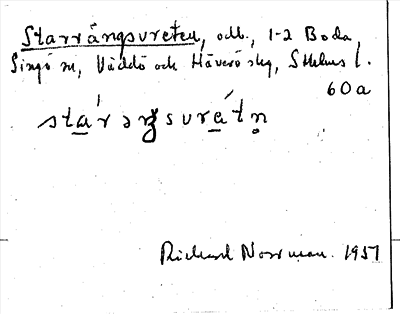 Starrängsvreten, odl., 1-2 Boda,
Singö sn, Väddö och Häverö skg, Sthlms l.
60a
stárəŋsvrétn̥
Richard Norrman. 1957